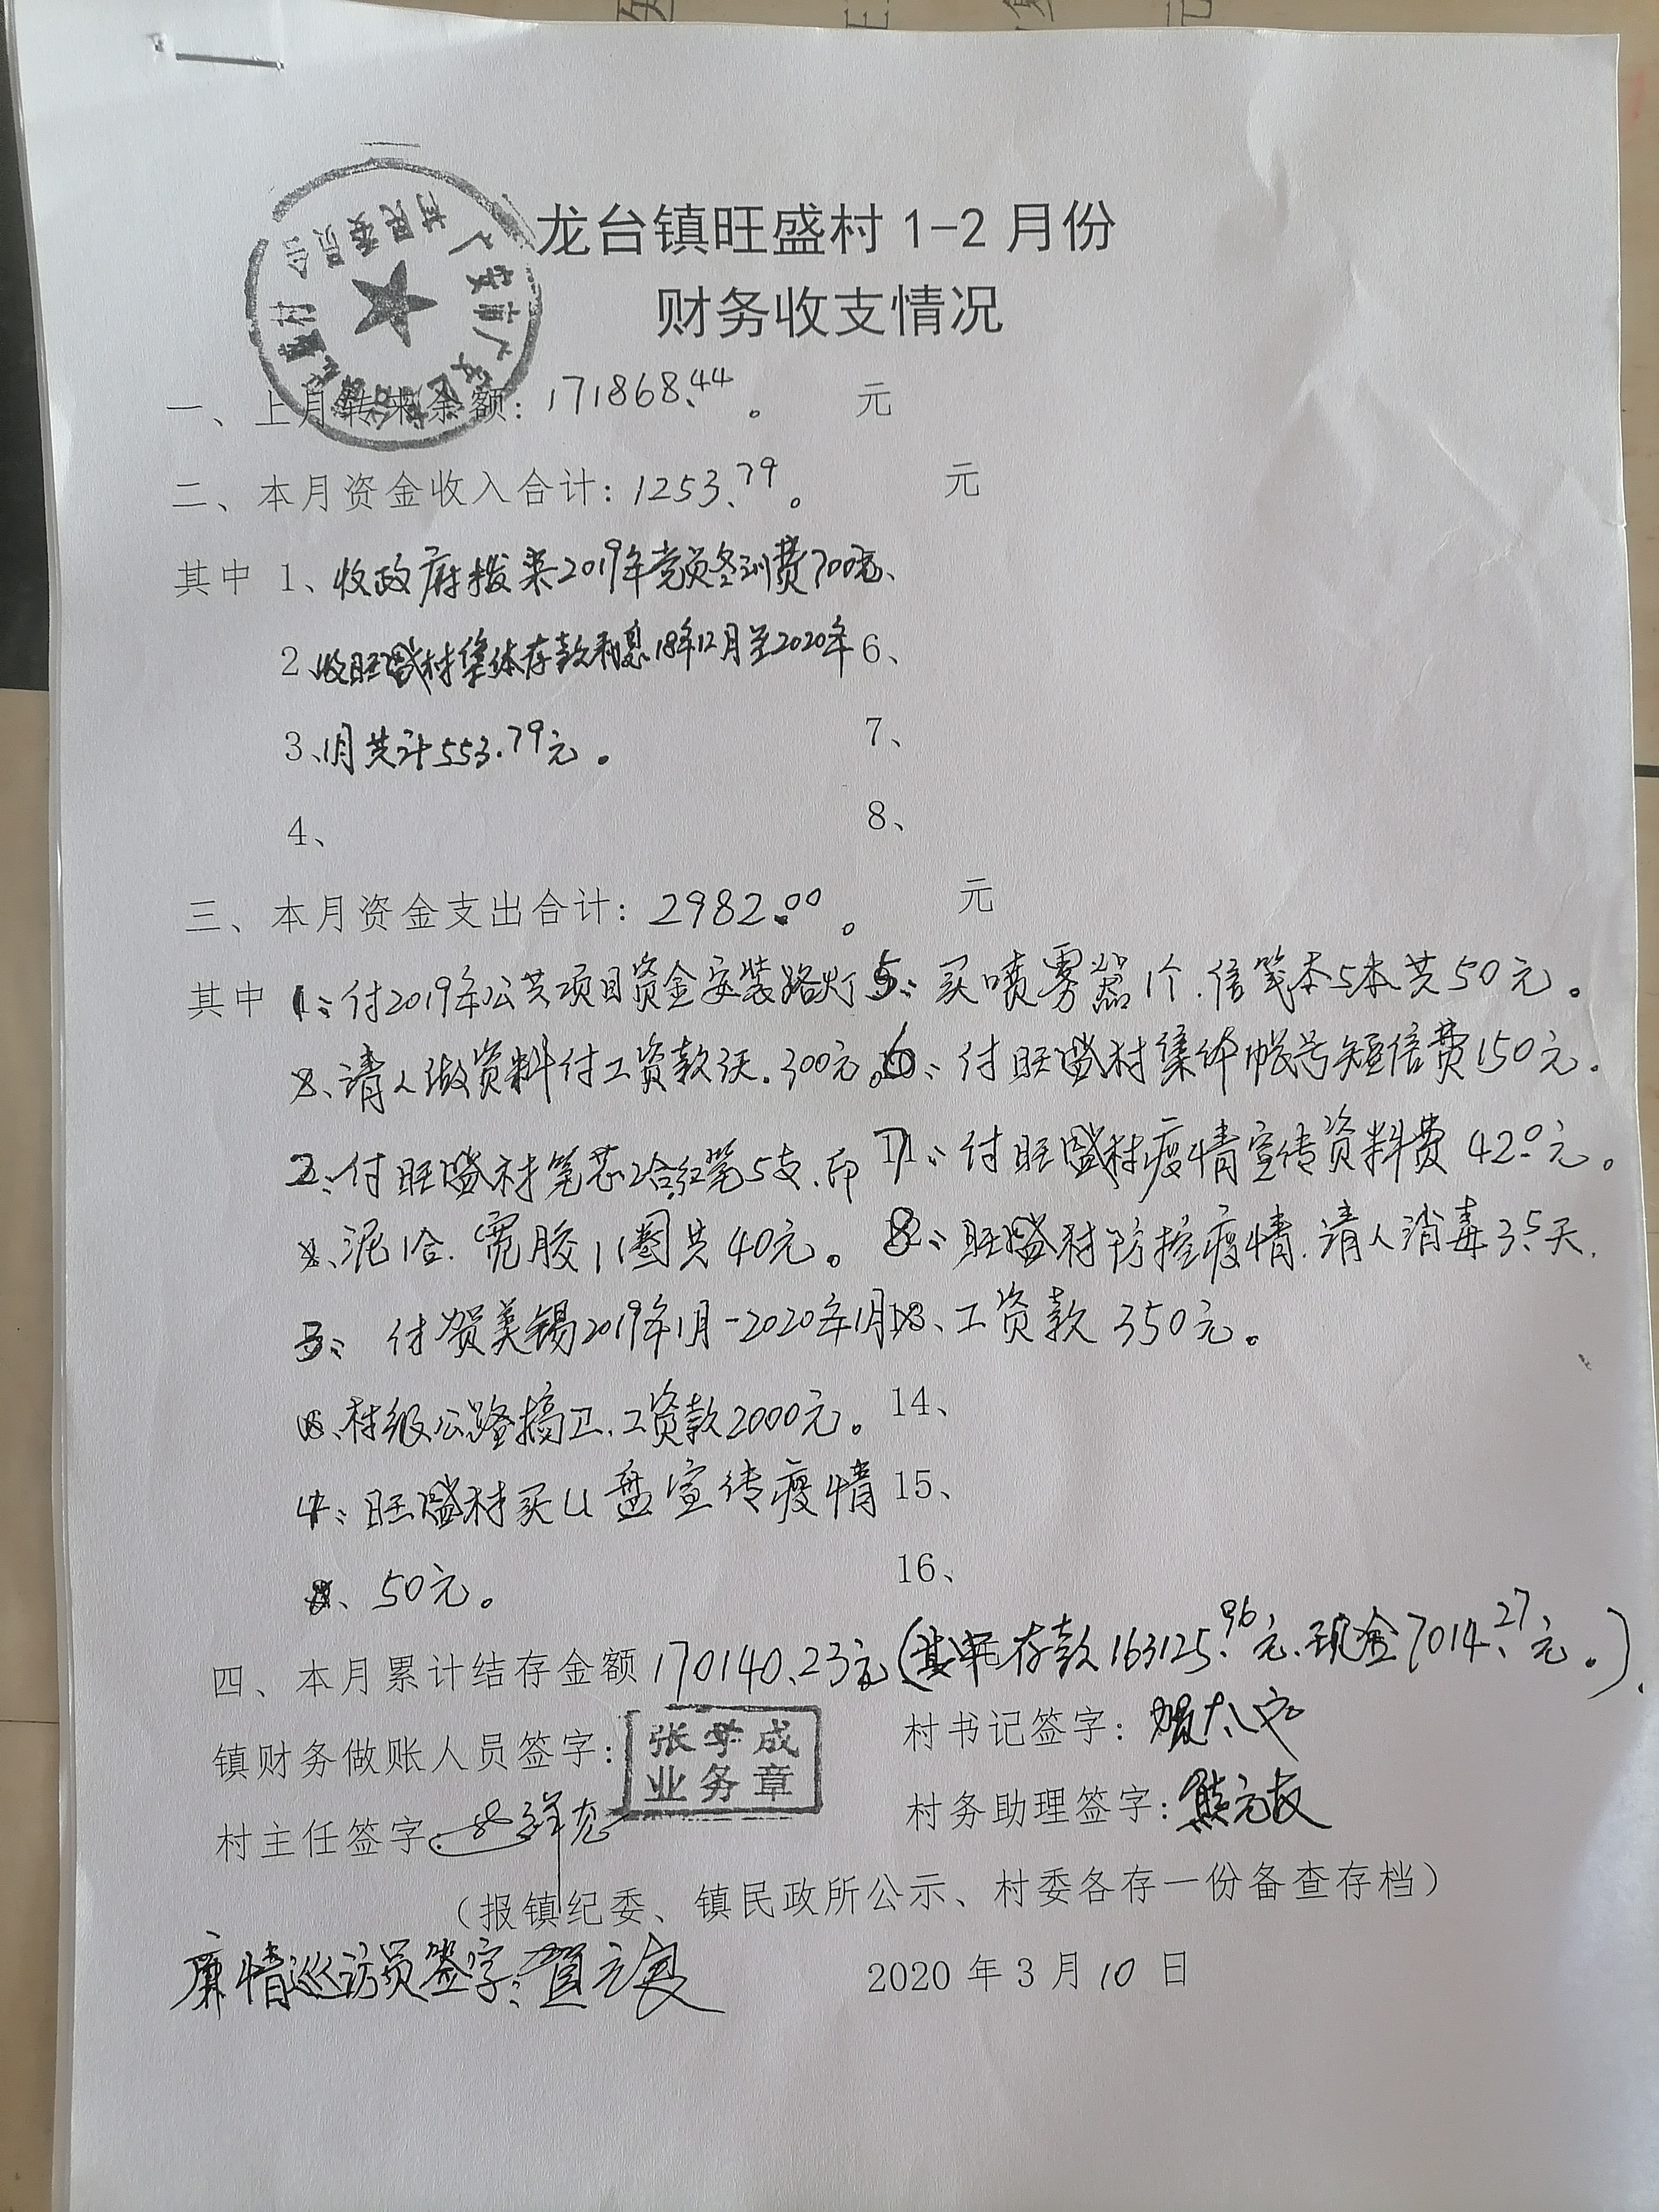 龙台镇旺盛村 1-2 月份
财务收支情况
一、上月转来余额：171868.44。 元
二、本月资金收入合计：1253.79。 元
其中 1、收政府拨来2019年党员冬训费700元、
2、收旺盛村集体存款利息18年12月至2020年 6、
3、1月共计553.79元。 7、
4、 8、
三、本月资金支出合计：2982.00。 元
其中 1、付2019年公共项目资金安装路灯 5、买喷雾器1个.信笺本5本共50元。
请人做资料付工资款 300元。 6、付旺盛村集体帐号短信费150元.
2、付旺盛村笔芯2合红笔5支.印 7、付旺盛村疫情宣传资料费 42.0元。
泥1合.宽胶1圈共40元。 8、旺盛村防控疫情.请人消毒3.5天.
3、付贺美锡2019年1月-2020年1月 工资款 350元。
村级公路搞卫.工资款2000元。 14、
4、旺盛村买U盘宣传疫情 15、
50元。 16、
四、本月累计结存金额170140.23元(其中存款163125.96元.现金7014.27元。)
镇财务做账人员签字： 张学成 业务章 村书记签字：
村主任签字： 村务助理签字：熊元友
（报镇纪委、镇民政所公示、村委各存一份备查存档）
廉情巡访员签字：贺元良 2020 年 3 月 10 日
村民委员会